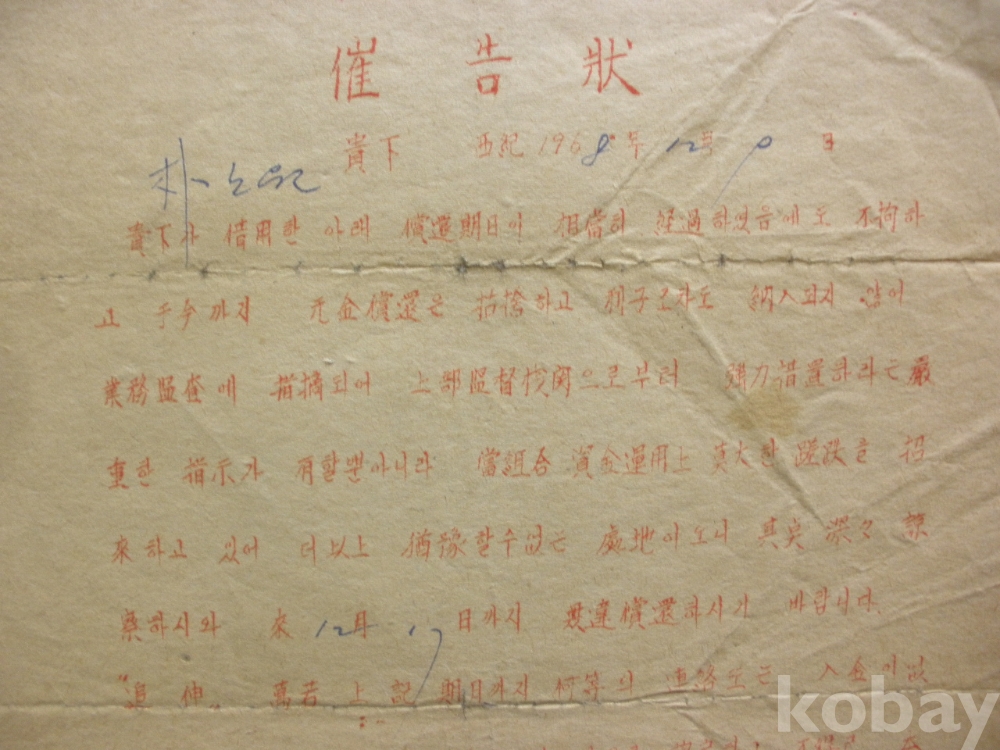 催告狀
貴下 西紀 1968年 12月 9日
朴
貴下가 借用한 아래 償還期日이 相當히 経過하였음에도 不拘하
고 于今까지 元金償還은 하고 利子조차도 納入되지 않어
業務監査에 指摘되어 上部監督機関으로부터 强力措置하라는 嚴
重한 指示가 有할뿐아니라 當組合 資金運用上 莫大한 蹉跌을 招
來하고 있어 더以上 猶豫할수없는 處地이오니 其点 深々 諒
察하시와 來 12月 17日까지 無違償還하시기 바랍니다.
"追伸" 萬若 上記 期日까지 何等의 連絡또는 入金이없
kobay